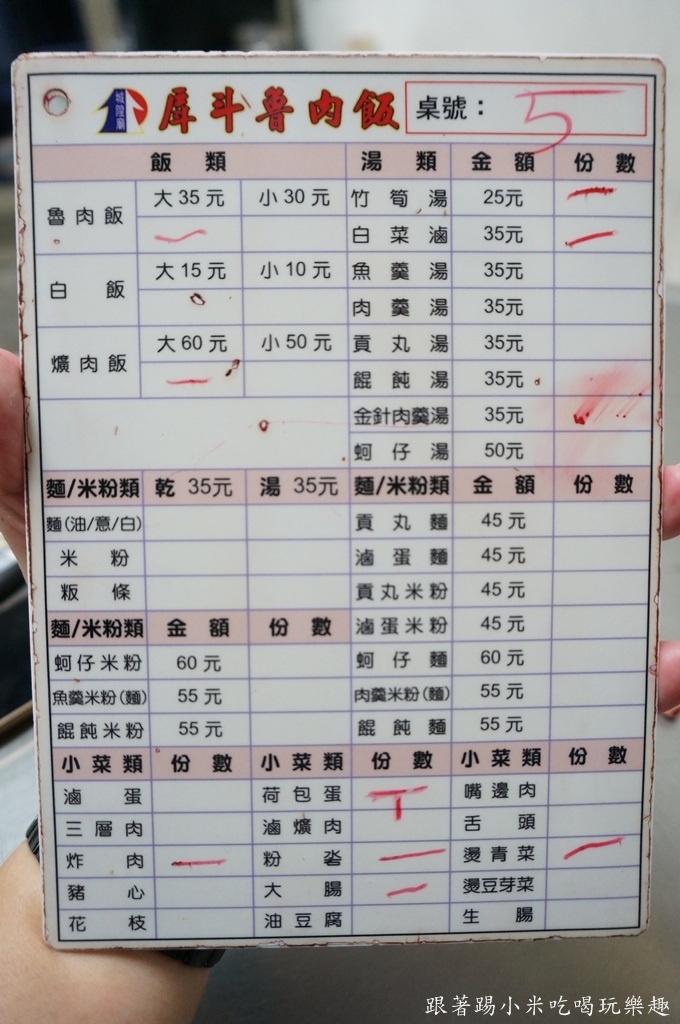 城隍廟 犀斗魯肉飯 桌號： 5
飯類 湯類 金額 份數
魯肉飯 大35元 小30元 竹筍湯 25元 一
一 白菜滷 35元 一
白飯 大15元 小10元 魚羹湯 35元
肉羹湯 35元
爌肉飯 大60元 小50元 貢丸湯 35元
一 餛飩湯 35元
金針肉羹湯 35元
蚵仔湯 50元
麵/米粉類 乾 35元 湯 35元 麵/米粉類 金額 份數
麵(油/意/白) 貢丸麵 45元
米粉 滷蛋麵 45元
粄條 貢丸米粉 45元
麵/米粉類 金額 份數 滷蛋米粉 45元
蚵仔米粉 60元 蚵仔麵 60元
魚羹米粉(麵) 55元 肉羹米粉(麵) 55元
餛飩米粉 55元 餛飩麵 55元
小菜類 份數 小菜類 份數 小菜類 份數
滷蛋 荷包蛋 T 嘴邊肉
三層肉 滷爌肉 舌頭
炸肉 一 粉沯 一 燙青菜 一
豬心 大腸 一 燙豆芽菜
花枝 油豆腐 生腸
跟著踢小米吃喝玩樂趣